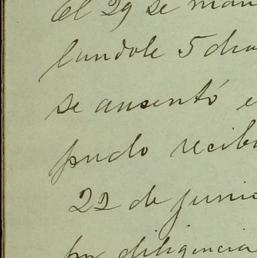 El 29 se man
landole 5 dia
se ausentó e
pudo recibi
22 de junio
por diligencia